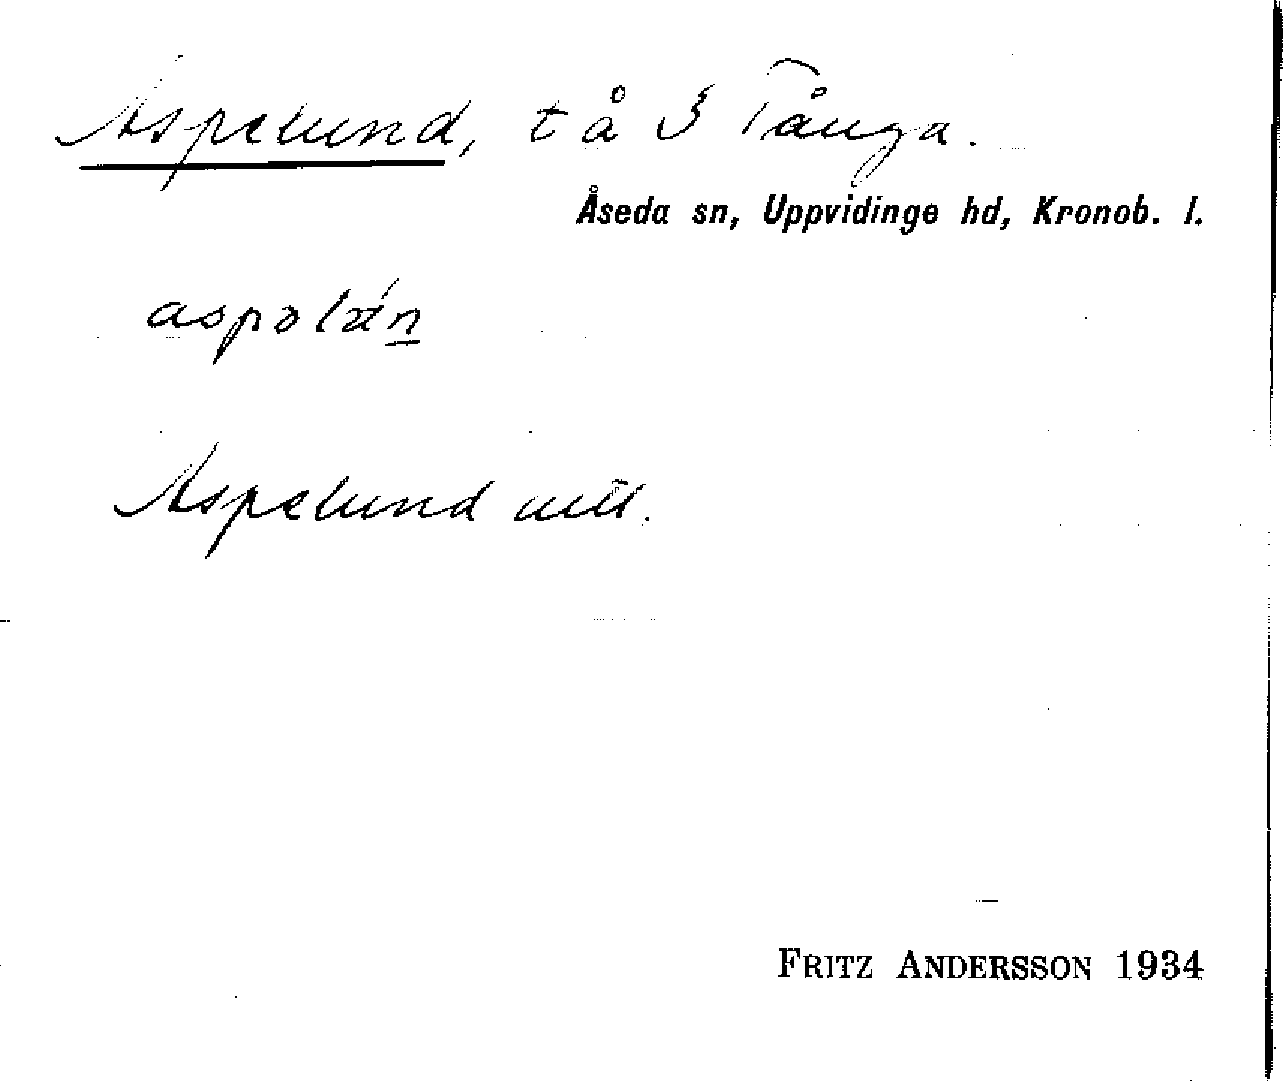 Aspelund, t å § Tånga.
Åseda sn, Uppvidinge hd, Kronob. l.
Aspelund
FRITZ ANDERSSON 1934